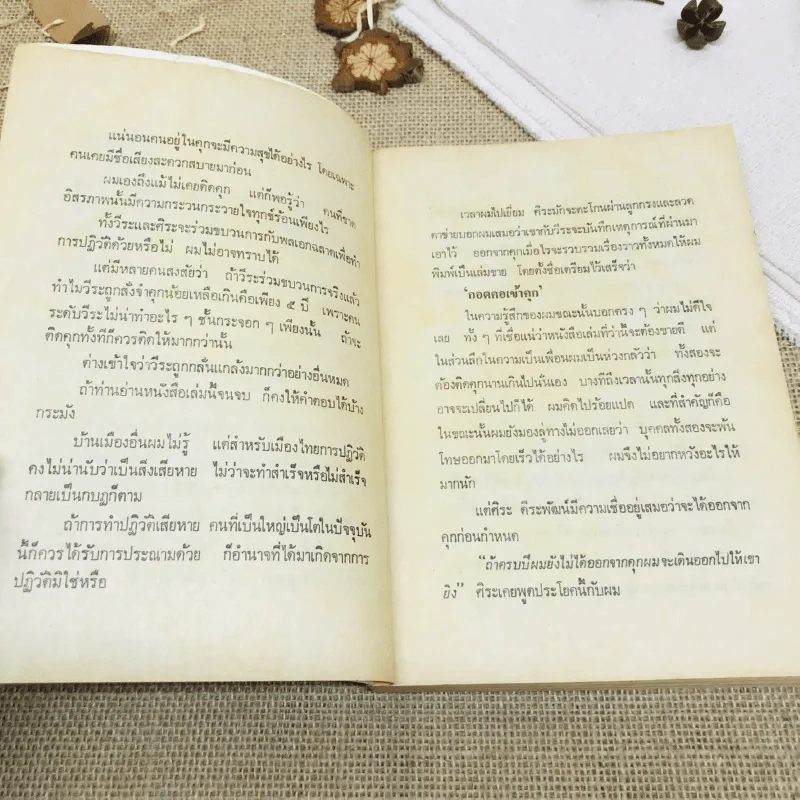 แน่นอนคนอยู่ในคุกจะมีความสุขได้อย่างไร โดยเฉพาะ
คนเคยมีชื่อเสียงสะดวกสบายมาก่อน
ผมเองถึงแม้ไม่เคยติดคุก แต่ก็พอรู้ว่า คนที่ขาด
อิสรภาพนั้นมีความกระวนกระวายใจทุกข์ร้อนเพียงไร
ทั้งวีระและศิระจะร่วมขบวนการกับพลเอกฉลาดเพื่อทำ
การปฏิวัติด้วยหรือไม่ ผมไม่อาจทราบได้
แต่มีหลายคนสงสัยว่า ถ้าวีระร่วมขบวนการจริงแล้ว
ทำไมวีระถูกสั่งจำคุกน้อยเหลือเกินคือเพียง ๕ ปี เพราะคน
ระดับวีระไม่น่าทำอะไร ๆ ชั้นกระจอก ๆ เพียงนั้น ถ้าจะ
ติดคุกทั้งทีก็ควรติดให้มากกว่านั้น
ต่างเข้าใจว่าวีระถูกกลั่นแกล้งมากกว่าอย่างอื่นหมด
ถ้าท่านอ่านหนังสือเล่มนี้จนจบ ก็คงให้คำตอบได้บ้าง
กระมัง
บ้านเมืองอื่นผมไม่รู้ แต่สำหรับเมืองไทยการปฏิวัติ
คงไม่น่านับว่าเป็นสิ่งเสียหาย ไม่ว่าจะทำสำเร็จหรือไม่สำเร็จ
กลายเป็นกบฏก็ตาม
ถ้าการทำปฏิวัติเสียหาย คนที่เป็นใหญ่เป็นโตในปัจจุบัน
นี้ก็ควรได้รับการประณามด้วย ก็อำนาจที่ได้มาเกิดจากการ
ปฏิวัติมิใช่หรือ
เวลาผมไปเยี่ยม ศิระมักจะตะโกนผ่านลูกกรงและลวด
ตาข่ายบอกผมเสมอว่าเขากับวีระจะบันทึกเหตุการณ์ที่ผ่านมา
เอาไว้ ออกจากคุกเมื่อไรจะรวบรวมเรื่องราวทั้งหมดให้ผม
พิมพ์เป็นเล่มขาย โดยตั้งชื่อเตรียมไว้เสร็จว่า
‘กอดคอเข้าคุก’
ในความรู้สึกของผมขณะนั้นบอกตรง ๆ ว่าผมไม่ดีใจ
เลย ทั้ง ๆ ที่เชื่อแน่ว่าหนังสือเล่มที่ว่านี้จะต้องขายดี แต่
ในส่วนลึกในความเป็นเพื่อนผมเป็นห่วงกลัวว่า ทั้งสองจะ
ต้องติดคุกนานเกินไปนั่นเอง บางทีถึงเวลานั้นทุกสิ่งทุกอย่าง
อาจจะเปลี่ยนไปก็ได้ ผมคิดไปร้อยแปด และที่สำคัญก็คือ
ในขณะนั้นผมยังมองลู่ทางไม่ออกเลยว่า บุคคลทั้งสองจะพ้น
โทษออกมาโดยเร็วได้อย่างไร ผมจึงไม่อยากหวังอะไรให้
มากนัก
แต่ศิระ ตีระพัฒน์มีความเชื่ออยู่เสมอว่าจะได้ออกจาก
คุกก่อนกำหนด
“ถ้าครบปีผมยังไม่ได้ออกจากคุกผมจะเดินออกไปให้เขา
ยิง” ศิระเคยพูดประโยคนี้กับผม